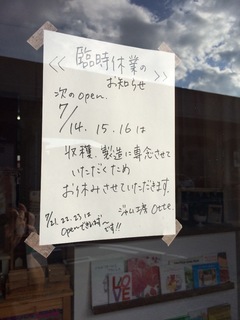 << 臨時休業の >>
お知らせ
次のopen.
7/
14.15.16は
収穫、製造に専念させて
いただくため
お休みさせていただきます。
ジャム工房 Otte
7/21.22.23は
openできれば
です!!
LOVE